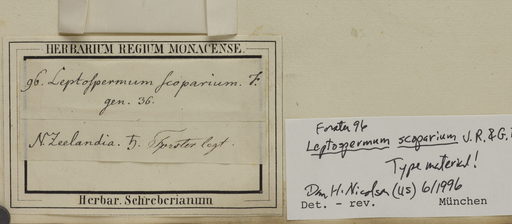 HERBARIUM REGIUM MONACENSE.
96. Leptospermum scoparium. F.
gen. 36.
N. Zeelandia. ♄. Forster legt.
Herbar. Schreberianum
Forster 96
Leptospermum scoparium J.R. & G.
Type material!
Dan H. Nicolson (US) 6/1996
Det. - rev. München